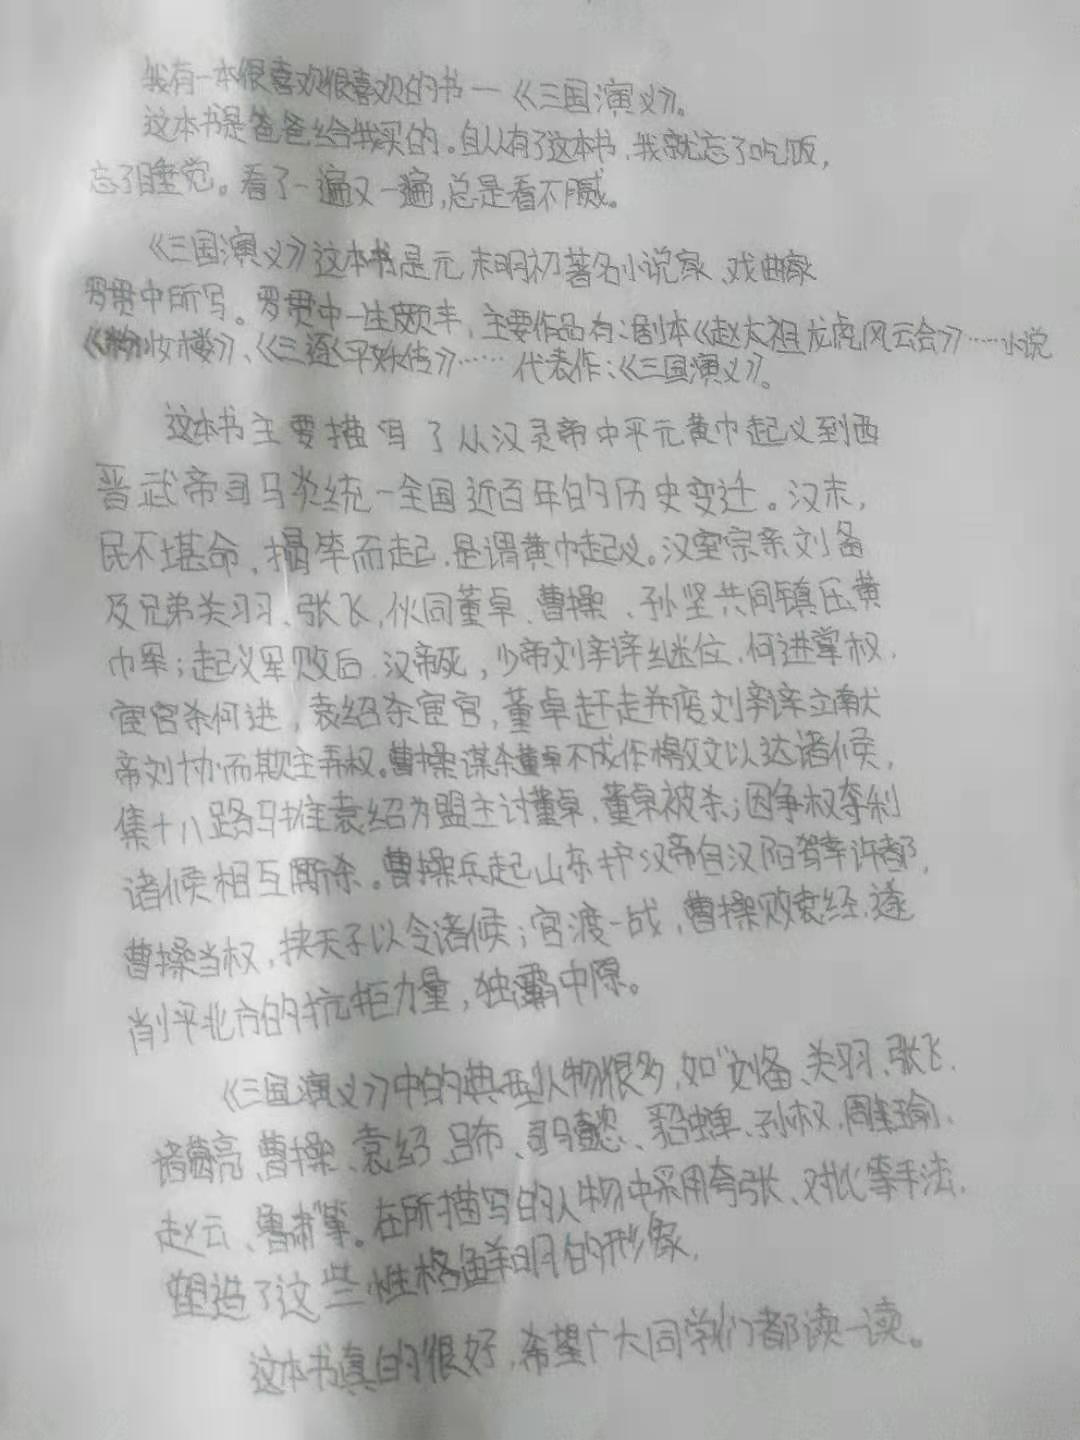 我有一本很喜欢很喜欢的书一《三国演义》。
这本书是爸爸给我买的。自从有了这本书,我就忘了吃饭,
忘了睡觉。看了一遍又一遍,总是看不腻。
《三国演义》这本书是元末明初著名小说家、戏曲家
罗贯中所写。罗贯中一生颇丰,主要作品有:剧本《赵太祖龙虎风云会》……小说
《粉妆楼》、《三遂平妖传》…… 代表作:《三国演义》。
这本书主要描写了从汉灵帝中平元黄巾起义到西
晋武帝司马炎统一全国近百年的历史变迁。汉末,
民不堪命,揭竿而起,是谓黄巾起义。汉室宗亲刘备
及兄弟关羽、张飞,伙同董卓、曹操、孙坚共同镇压黄
巾军;起义军败后,汉帝死,少帝刘辛谇继位,何进掌权,
宦官杀何进,袁绍杀宦官,董卓赶走并废刘辛谇立献
帝刘协而欺主弄权。曹操谋杀董卓不成作檄文以达诸候,
集十八路马推袁绍为盟主讨董卓,董卓被杀;因争权夺利
诸候相互厮杀。曹操兵起山东护汉帝自汉阳驾幸许都,
曹操当权,挟天子以令诸候;官渡一战,曹操败袁经,遂
削平北方的抗拒力量,独霸中原。
《三国演义》中的典型人物很多,如"刘备、关羽、张飞、
诸葛亮、曹操、袁绍、吕布、司马懿、貂蝉、孙权、周瑜、
赵云、鲁肃"等。在所描写的人物中采用夸张、对比等手法,
塑造了这些性格鲜明的形象,
这本书真的很好,希望广大同学们都读一读。